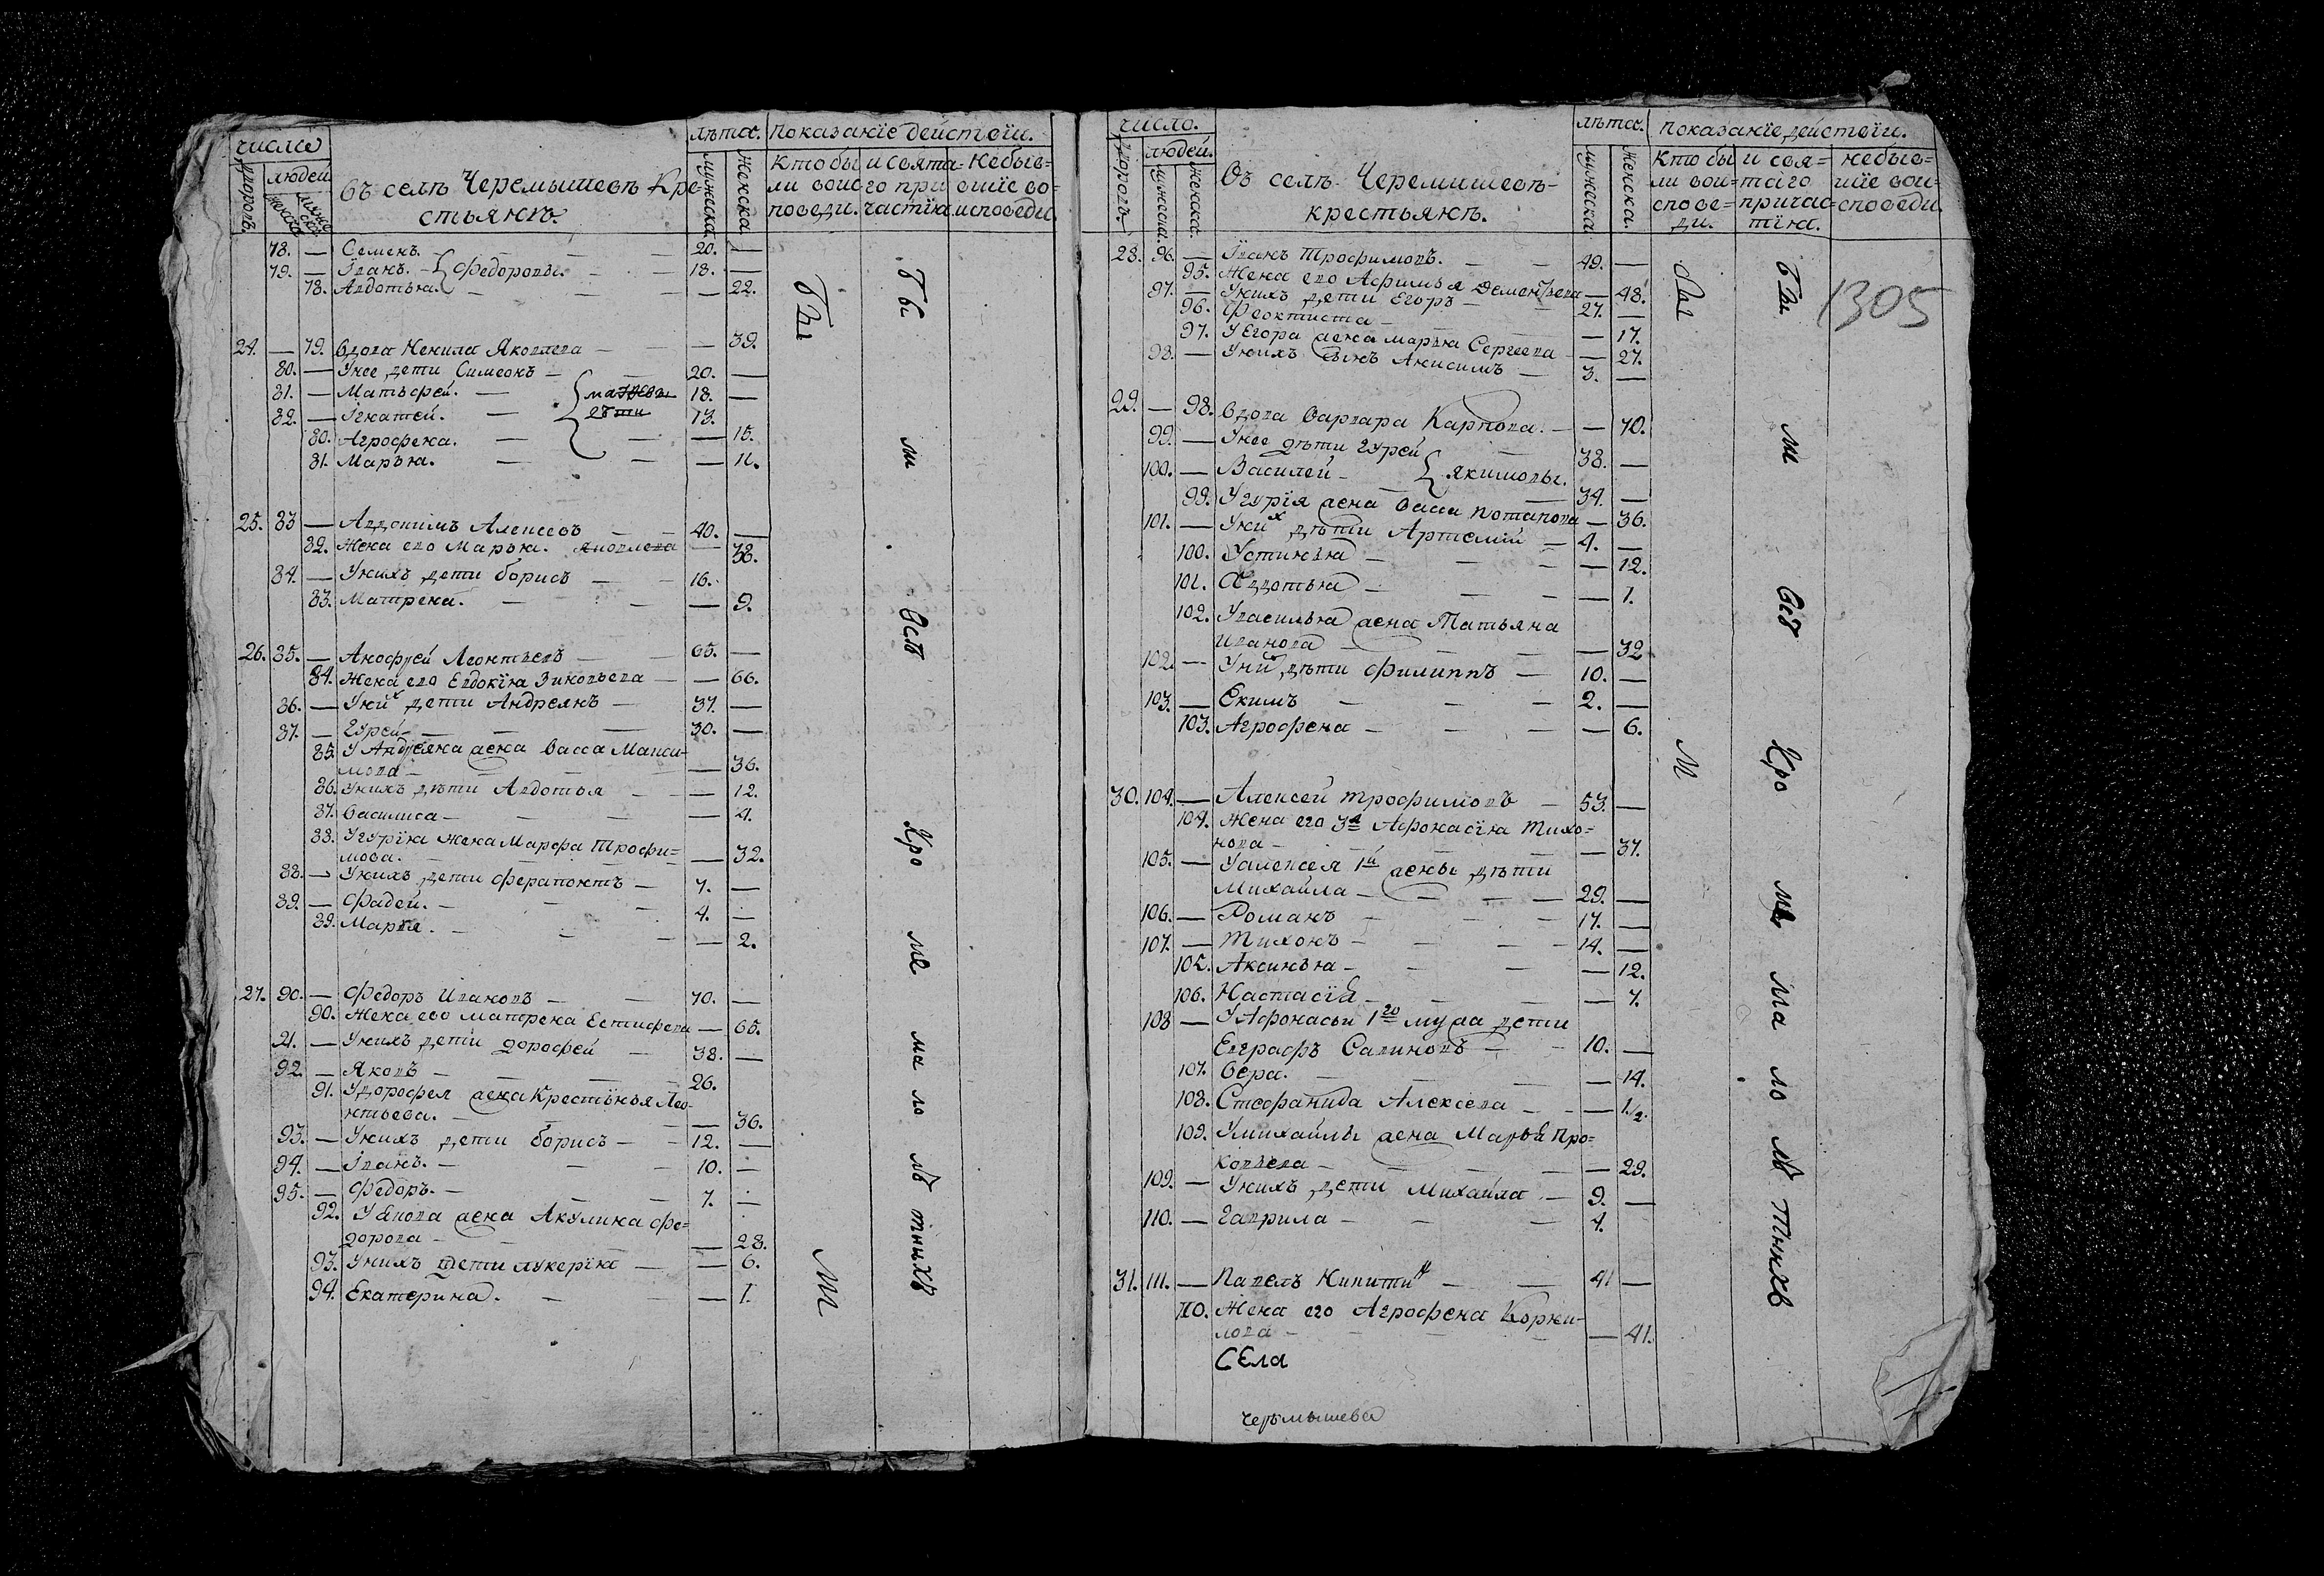 число
дворовъ.
людей
лѣта. показанїе действїи.
мужеска. женска.
въ селѣ Черемышевѣ Кре-
стьянъ.
Кто бы
ли воис
поведи.
и свята-
го при
частїя.
Небыв-
шїе во-
исповеди.
78. — Семенъ. — 20. —
79. — Iванъ. — Федоровы. — 18. —
78. Авдотья. — — 22.
24. — 79. Вдова Ненила Яковлева — — 39.
80. — У нее дети Симеонъ — 20. —
81. — Матьфей. — 18. —
82. — Iгнатей. — 13.
80. Агрофена. — — 15.
81. Марья. — — 11.
25. 83 — Авдонимъ Алексеевъ — 40. —
82. Жена ево Марья. Яковлева — 38.
84. — У нихъ дети борисъ — 16.
83. Матрена. — — 9.
26. 85. — Анофрей Леонтьевъ — 65. —
84. Жена ево Евдокїя Зиновьева — — 66.
86. — У них дети Андреянъ — 37. —
87. — Гурей — 30. —
85. У Андреяна жена Васса Макси-
мова — — 36.
86. У нихъ дѣти Авдотья — — 12.
87. Василиса — — 4.
88. У Гурїя жена Марфа Трофи=
мова. — — 32.
88. — У нихъ дети Ферапонтъ — 7. —
89. — Фадей. — 4. —
89. Марья. — — 2.
27. 90. — Федоръ Ивановъ — 70. —
90. Жена ево Матрена Естифева — 65.
91. — У нихъ дети Дорофей — 38. —
92. — Яковъ — 26.
91. У Дорофея жена Крестинья Лео-
нтьева. — — 36.
93. — У нихъ дети борисъ — 12. —
94. — Iванъ. — 10. —
95. — Федоръ. — 7. —
92. У Якова жена Акулина Фе=
дорова — — 28.
93. У нихъ дети лукерїя — — 6.
94. Екатерина. — — 1.
Бы
ли
Бы
ли
Всѣ
Кро
ме
ма
ло
лѣ
тныхъ
число.
дворовъ.
людей.
мужеска. женска.
Въ селѣ Черемышевѣ
крестьянъ.
лѣта. показанїе действїи.
мужеска женска.
Кто бы
ли вои-
спове-
ди.
и свя=
таго
причас=
тїя.
небыв-
шїе вои-
споведи.
1305
28. 96. — Iванъ Трофимовъ. — 49. —
95. Жена ево Афимья Дементьева — 48.
97. — У нихъ дети Егоръ — 27. —
96. Феоктиста — — 17.
97. У Егора жена марья Сергеева — 27.
98. — У нихъ сынъ Анисимъ — 3. —
29. — 98. Вдова Варвара Карпова. — — 70.
99. — У нее дѣти Гурей 38. —
100. — Василей — Якимовы. 34. —
99. У Гурїя жена Васса Потапова — 36.
101. — У них дѣти Артемий — 4. —
100. Устинья — — 12.
101. Авдотья — — 1.
102. У василья жена Татьяна
иванова — — 32
102. — У них дѣти Филиппъ — 10. —
103. — Екимъ — 2. —
103. Агрофена — — 6.
30. 104. — Алексей Трофимовъ — 53. —
104. Жена его 3я Афонасїя Тихо=
нова — — 37.
105. — У алексея 1й жены дѣти
Михайла — 29. —
106. — Романъ — 17. —
107. — Тихонъ — 14. —
105. Аксинья — — 12.
106. Настасїя — — 7.
108 — У Афонасьи 1го мужа дети
Евграфъ Савиновъ — 10. —
107. Вера. — — 14.
108. Стефанида Алексева — — 1/2.
109. У михайлы жена Марья Про=
копьева — — 29.
109. — У нихъ дети Михайла — 9. —
110. — Гаврила — 4.
31. 111. — Павелъ Никитин — 41 —
110. Жена его Агрофена Корни-
лова — — 41.
Села
Черѣмышева
Бы
ли
Всѣ
Кро
ме
ма
ло
лѣ
тныхъ